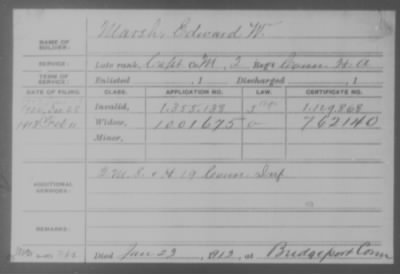 NAME OF SOLDIER: Marsh, Edward W.
SERVICE: Late rank, Capt Co M, 2 Reg't Conn H. A.
TERM OF SERVICE: Enlisted , 1 Discharged , 1
DATE OF FILING. CLASS. APPLICATION NO. LAW. CERTIFICATE NO.
Invalid, 1.355.139 1.129.868
1912 Feb Widow, 1001675 762140
Minor,
ADDITIONAL SERVICES: F. M. S. + H 19 Conn Inf
REMARKS:
Died Jan 23, 1912, at Bridgeport Conn